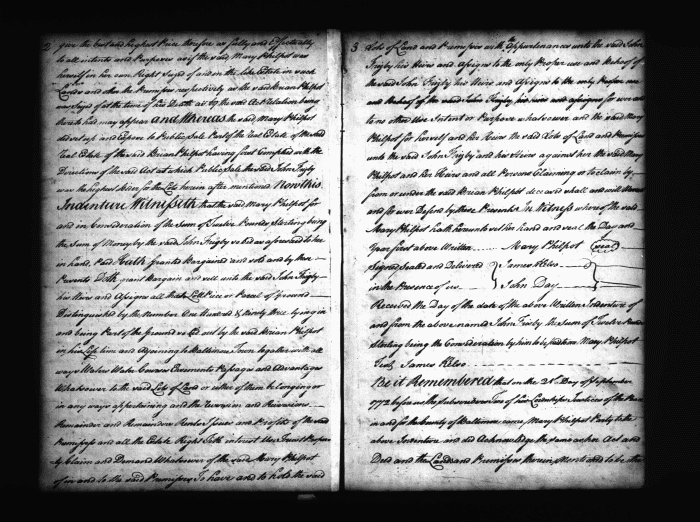 2
give the best and highest Price therefor as fully and Effectually
to all intents and Purposes as if the said Mary Philpot was
herself in her own Right Seized of and in the Estate in such
Lands and other the Premises respectively as the said Brian Philpot
was Seized of at the time of his Death as by the said Act Relation being
thereto had may appear and Whereas the said Mary Philpot
did set up and Expose to Public Sale Part of the Real Estate of the said
Real Estate of the said Brian Philpot having first Complied with the
Directions of the said Act at which Public Sale the said John Frigby
was the highest bidder for the Lots herein after mentioned Now this
Indenture Witnesseth that the said Mary Philpot for
and in Consideration of the Sum of Twelve Pounds Sterling being
the Sum of Money by the said John Frigby as aforesaid to her
in hand Paid Hath granted Bargained and sold and by these
Presents Doth grant Bargain and sell unto the said John Frigby
his Heirs and Assigns all that Lot Piece or Parcel of Ground
Distinguished by the Number One Hundred & Ninety three lying in
and being Part of the Ground laid out by the said Brian Philpot
in his Life time and Adjoining to Baltimore Town together with all
ways Waters Water Courses Easements Passages and Advantages
Whatsoever to the said Lots of Land or either of them belonging or
in any ways appertaining and the Reversion and Reversions
Remainder and Remainders Rents Issues and Profits of the said
Premises and all the Estate Right Title interest Use Trust Property
Claim and Demand Whatsoever of the said Mary Philpot
of in and to the said Premises To have and to hold the said
3
Lots of Land and Premises with the Appurtenances unto the said John
Frigby his Heirs and Assigns to the only Proper use and Behoof of
the said John Frigby his Heirs and Assigns to the only Proper use
and Behoof of the said John Frigby his heirs and assigns for ever and
to no other Use Intent or Purpose whatsoever and the said Mary
Philpot for himself and her Heirs the said Lots of Land and Premises
unto the said John Frigby and his Heirs against her the said Mary
Philpot and her Heirs and all Persons Claiming or to claim by
from or under the said Brian Philpot deceased shall and will Warrant
and for ever Defend by these Presents In Witness whereof the said
Mary Philpot hath hereunto set her hand and seal the Day and
Year first above Written Mary Philpot (seal)
Signed Sealed and Delivered James Kelso
in the Presence of us John Day
Received the Day of the date of the above Written Indenture of
and from the above named John Frigby the Sum of Twelve Pounds
Sterling being the Consideration by him to be paid me Mary Philpot
Test James Kelso
Be it Remembered that on the 21st Day of September
1772 before the Subscribers Two of his Lordships Justices of the Peace
in and for the County of Baltimore came Mary Philpot Party to the
above Indenture and did Acknowledge the same as her Act and
Deed and the Lands and Premises therein Mentioned to be the